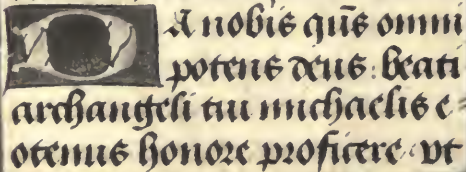 DA nobis qūs omni
potens deus: beati
archangeli tui michaelis e
otenus honore proficere. vt